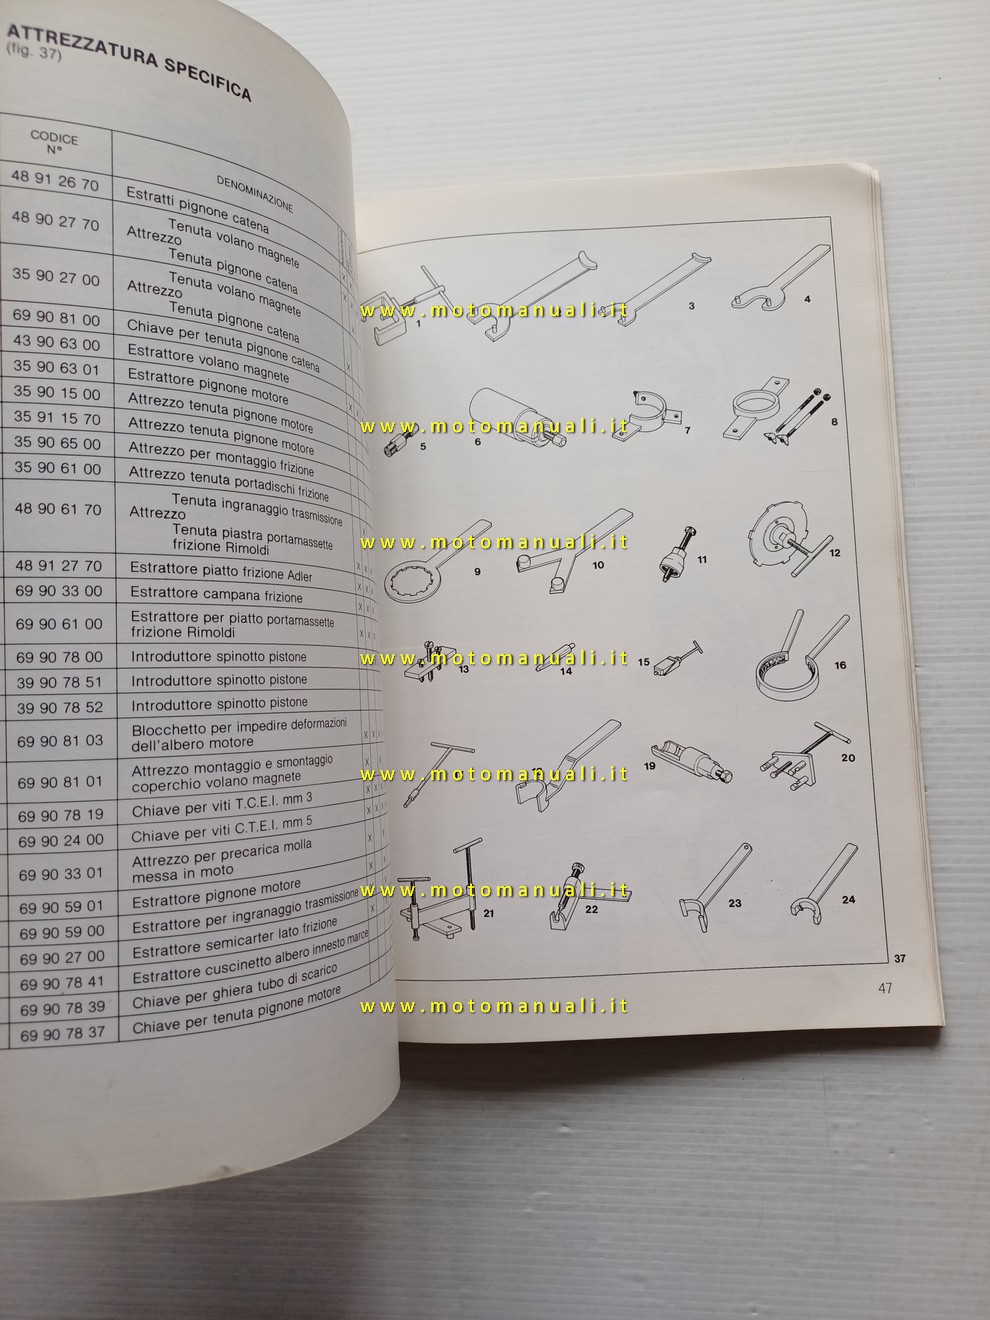 ATTREZZATURA SPECIFICA
(fig. 37)
CODICE
N°
DENOMINAZIONE
48 91 26 70 Estratti pignone catena
48 90 27 70 Attrezzo Tenuta volano magnete
Tenuta pignone catena
35 90 27 00 Attrezzo Tenuta volano magnete
Tenuta pignone catena
69 90 81 00 Chiave per tenuta pignone catena
43 90 63 00 Estrattore volano magnete
35 90 63 01 Estrattore pignone motore
35 90 15 00 Attrezzo tenuta pignone motore
35 91 15 70 Attrezzo tenuta pignone motore
35 90 65 00 Attrezzo per montaggio frizione
35 90 61 00 Attrezzo tenuta portadischi frizione
48 90 61 70 Attrezzo Tenuta ingranaggio trasmissione
Tenuta piastra portamassette
frizione Rimoldi
48 91 27 70 Estrattore piatto frizione Adler
69 90 33 00 Estrattore campana frizione
69 90 61 00 Estrattore per piatto portamassette
frizione Rimoldi
69 90 78 00 Introduttore spinotto pistone
39 90 78 51 Introduttore spinotto pistone
39 90 78 52 Introduttore spinotto pistone
69 90 81 03 Blocchetto per impedire deformazioni
dell'albero motore
69 90 81 01 Attrezzo montaggio e smontaggio
coperchio volano magnete
69 90 78 19 Chiave per viti T.C.E.I. mm 3
69 90 24 00 Chiave per viti C.T.E.I. mm 5
69 90 33 01 Attrezzo per precarica molla
messa in moto
69 90 59 01 Estrattore pignone motore
69 90 59 00 Estrattore per ingranaggio trasmissione
69 90 27 00 Estrattore semicarter lato frizione
69 90 78 41 Estrattore cuscinetto albero innesto marce
69 90 78 39 Chiave per ghiera tubo di scarico
69 90 78 37 Chiave per tenuta pignone motore
www.motomanuali.it
1 3 4
www.motomanuali.it
5 6 7 8
www.motomanuali.it
9 10 11 12
www.motomanuali.it
13 14 15 16
www.motomanuali.it
19 20
www.motomanuali.it
21 22 23 24
37
47
www.motomanuali.it